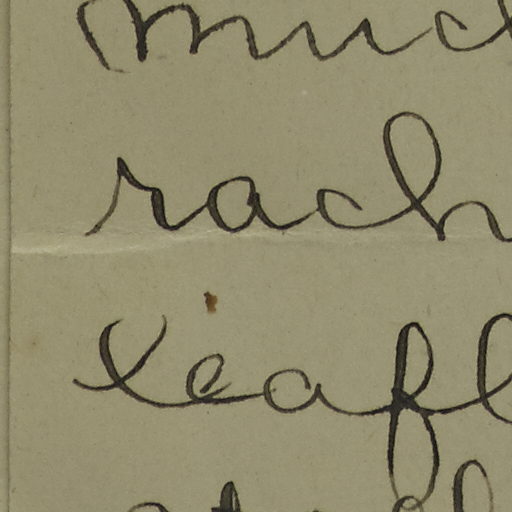 muc
rach
leafl